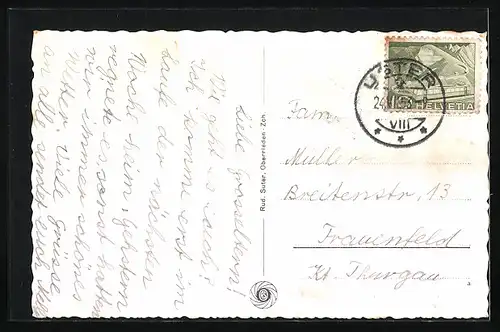 Liebe Grosseltern!
Wie geht es euch?
Ich komme erst im
Laufe der nächsten
Woche heim, gestern
regnete es sonst hatten
wir immer schönes
Wetter. Viele Grüsse
an alle sendet euch
Rud. Suter, Oberrieden-Zch.
USTER
VIII
HELVETIA
Fam.
Müller
Breitenstr. 13
Frauenfeld
Kt. Thurgau